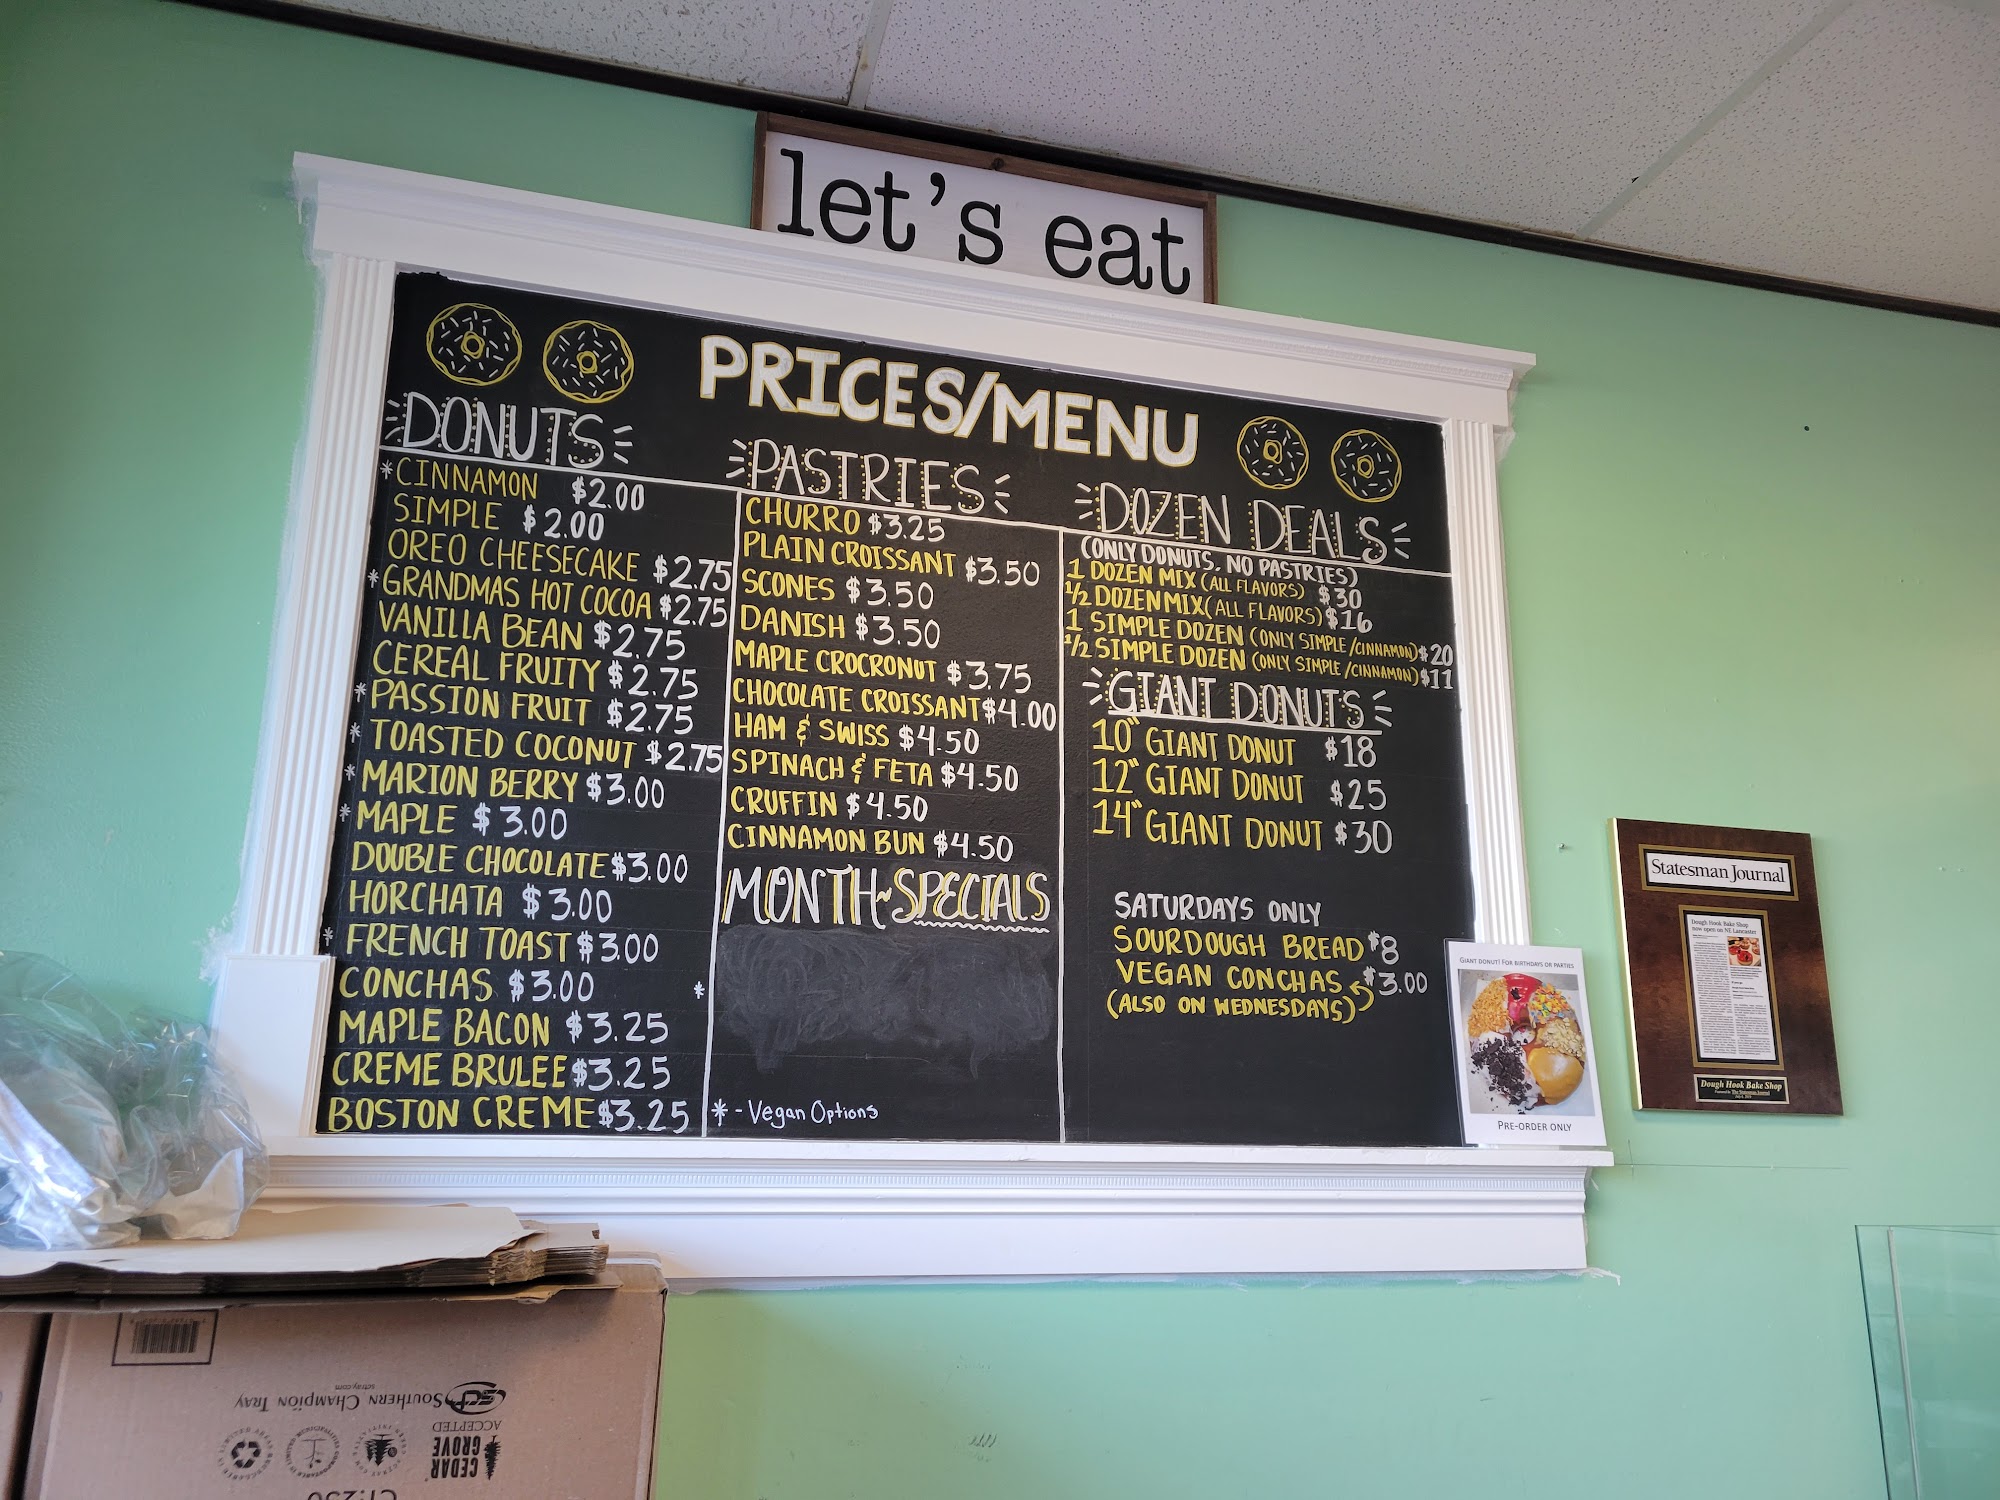 let's eat
PRICES/MENU
DONUTS
*CINNAMON $2.00
SIMPLE $2.00
OREO CHEESECAKE $2.75
*GRANDMAS HOT COCOA $2.75
VANILLA BEAN $2.75
CEREAL FRUITY $2.75
*PASSION FRUIT $2.75
*TOASTED COCONUT $2.75
*MARION BERRY $3.00
*MAPLE $3.00
DOUBLE CHOCOLATE $3.00
HORCHATA $3.00
*FRENCH TOAST $3.00
CONCHAS $3.00 *
MAPLE BACON $3.25
CREME BRULEE $3.25
BOSTON CREME $3.25
PASTRIES
CHURRO $3.25
PLAIN CROISSANT $3.50
SCONES $3.50
DANISH $3.50
MAPLE CROCRONUT $3.75
CHOCOLATE CROISSANT $4.00
HAM & SWISS $4.50
SPINACH & FETA $4.50
CRUFFIN $4.50
CINNAMON BUN $4.50
MONTH~SPECIALS
* - Vegan Options
DOZEN DEALS
(ONLY DONUTS. NO PASTRIES)
1 DOZEN MIX (ALL FLAVORS) $30
1/2 DOZEN MIX (ALL FLAVORS) $16
1 SIMPLE DOZEN (ONLY SIMPLE/CINNAMON) $20
1/2 SIMPLE DOZEN (ONLY SIMPLE/CINNAMON) $11
GIANT DONUTS
10" GIANT DONUT $18
12" GIANT DONUT $25
14" GIANT DONUT $30
SATURDAYS ONLY
SOURDOUGH BREAD $8
VEGAN CONCHAS $3.00
(ALSO ON WEDNESDAYS)
GIANT DONUT! FOR BIRTHDAYS OR PARTIES
PRE-ORDER ONLY
Statesman Journal
Dough Hook Bake Shop
now open on NE Lancaster
Dough Hook Bake Shop
SOUTHERN CHAMPION TRAY
sctray.com
ACCEPTED
CEDAR
GROVE